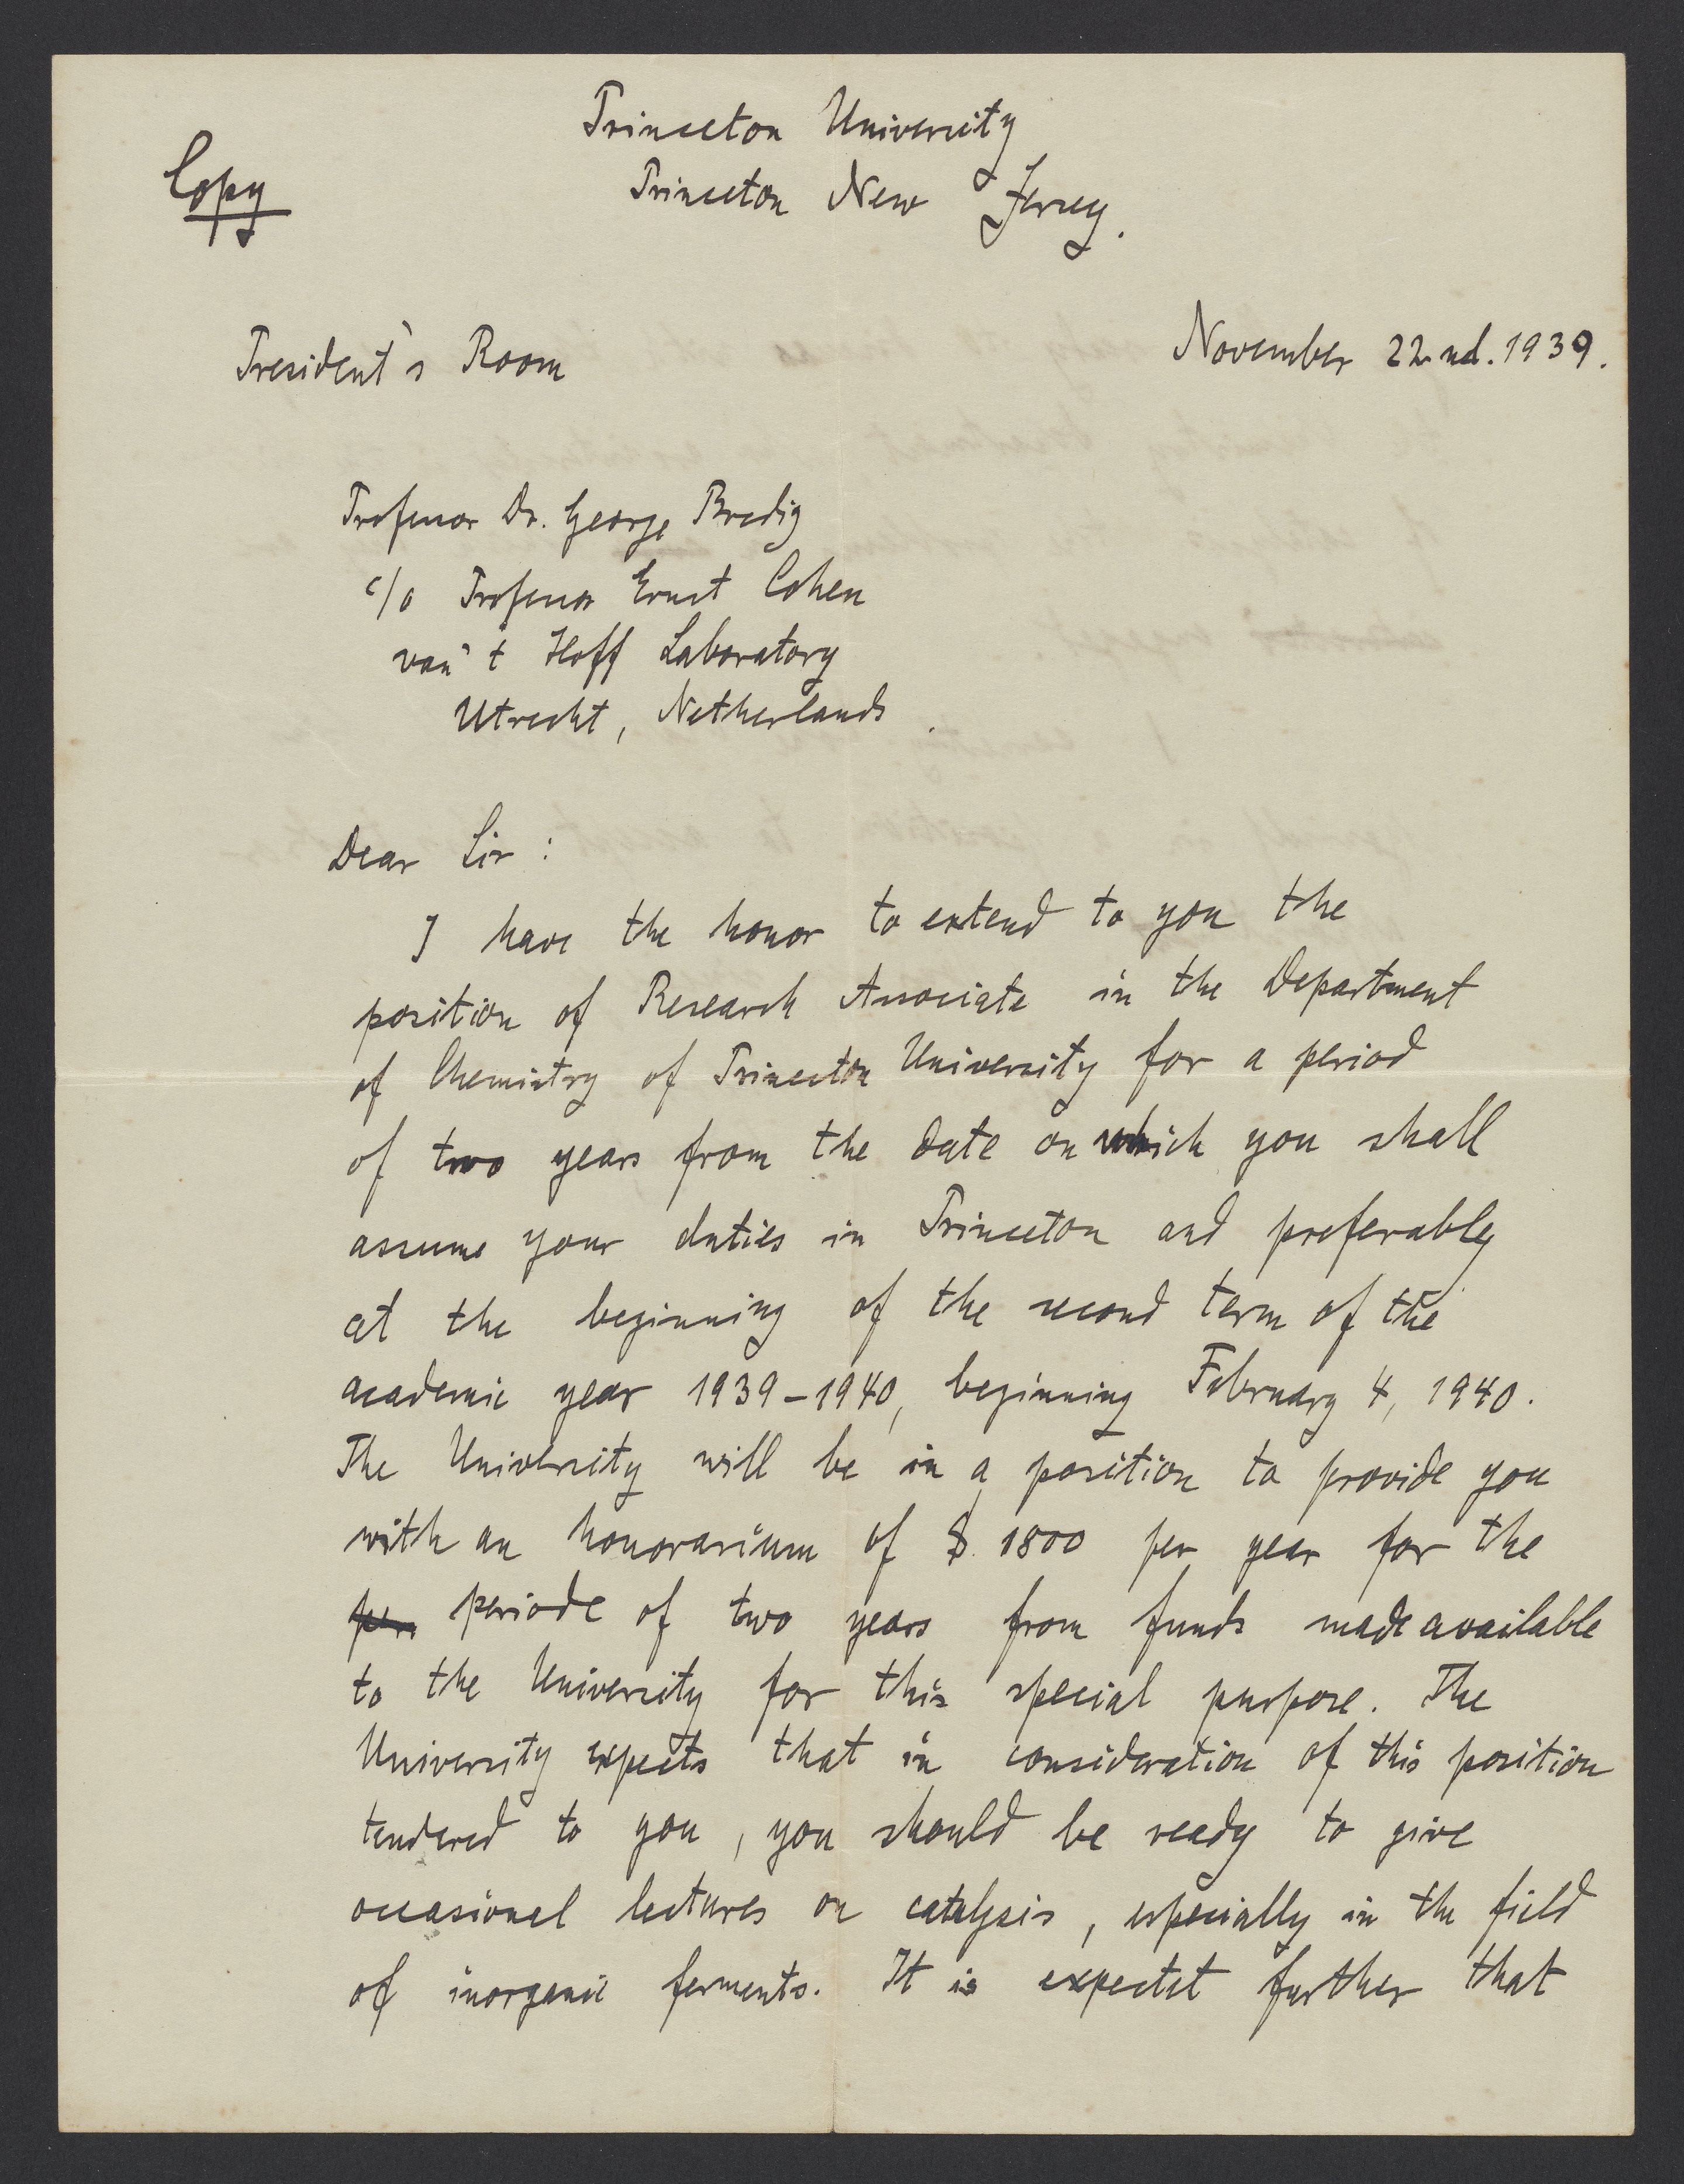 Princeton University
Copy
Princeton New Jersey.
President's Room
November 22nd. 1939.
Professor Dr. George Bredig
c/o Professor Ernst Cohen
van't Hoff Laboratory
Utrecht, Netherlands.
Dear Sir:
I have the honor to extend to you the
position of Research Associate in the Department
of Chemistry of Princeton University for a period
of two years from the date on which you shall
assume your duties in Princeton and preferably
at the beginning of the second term of the
academic year 1939-1940, beginning February 4, 1940.
The University will be in a position to provide you
with an honorarium of $ 1800 per year for the
periode of two years from funds made available
to the University for this special purpose. The
University expects that in consideration of this position
tendered to you, you should be ready to give
occasional lectures on catalysis, especially in the field
of inorganic ferments. It is expectet further that